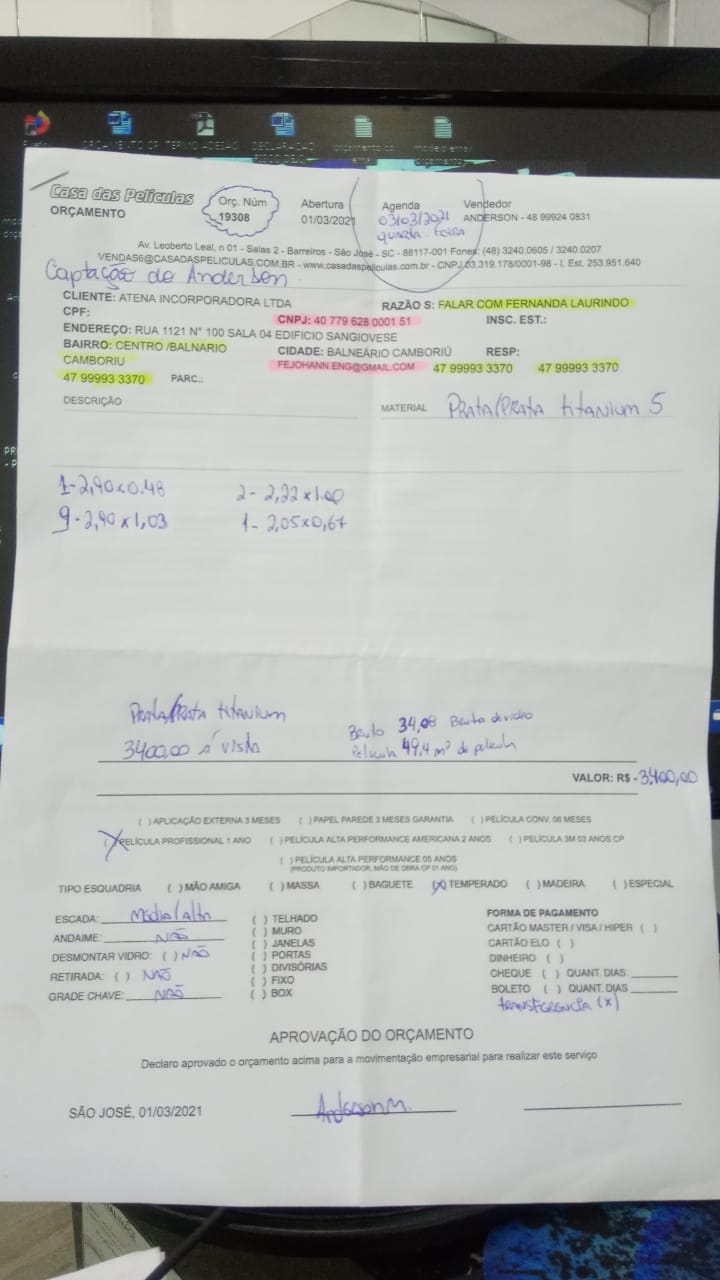 Casa das Películas
ORÇAMENTO
Orç. Núm
19308
Abertura
01/03/2021
Agenda
03/03/2021
quarta-feira
Vendedor
ANDERSON - 48 99924 0831
Av. Leoberto Leal, n 01 - Salas 2 - Barreiros - São José - SC - 88117-001 Fones: (48) 3240.0605 / 3240.0207
VENDAS6@CASADASPELICULAS.COM.BR - www.casadaspeliculas.com.br - CNPJ 03.319.178/0001-98 - I. Est. 253.951.640
Captação do Anderson
CLIENTE: ATENA INCORPORADORA LTDA
RAZÃO S: FALAR COM FERNANDA LAURINDO
CPF:
CNPJ: 40 779 628 0001 51
INSC. EST.:
ENDEREÇO: RUA 1121 N° 100 SALA 04 EDIFICIO SANGIOVESE
BAIRRO: CENTRO /BALNARIO CAMBORIU
CIDADE: BALNEÁRIO CAMBORIÚ
RESP:
FEJOHANN.ENG@GMAIL.COM
47 99993 3370
47 99993 3370
47 99993 3370
PARC.:
DESCRIÇÃO
MATERIAL Prata/Prata titanium 5
1-2,90x0.48
2- 2,22x1.00
9-2,90x1,03
1- 2,05x0,67
Prata/Prata titanium
3400,00 á vista
Bruto 34,08 Bruto de vidro
Pelicula 49,4 m² de pelicula
VALOR: R$ -3400,00
( ) APLICAÇÃO EXTERNA 3 MESES ( ) PAPEL PAREDE 3 MESES GARANTIA ( ) PELÍCULA CONV. 06 MESES
(X) PELÍCULA PROFISSIONAL 1 ANO ( ) PELÍCULA ALTA PERFORMANCE AMERICANA 2 ANOS ( ) PELÍCULA 3M 03 ANOS CP
( ) PELÍCULA ALTA PERFORMANCE 05 ANOS
(PRODUTO IMPORTADOR, MÃO DE OBRA CP 01 ANO)
TIPO ESQUADRIA ( ) MÃO AMIGA ( ) MASSA ( ) BAGUETE (X) TEMPERADO ( ) MADEIRA ( ) ESPECIAL
ESCADA: Médio/alto
ANDAIME: NÃO
DESMONTAR VIDRO: ( ) NÃO
RETIRADA: ( ) NÃO
GRADE CHAVE: NÃO
( ) TELHADO
( ) MURO
( ) JANELAS
( ) PORTAS
( ) DIVISÓRIAS
( ) FIXO
( ) BOX
FORMA DE PAGAMENTO
CARTÃO MASTER / VISA / HIPER ( )
CARTÃO ELO ( )
DINHEIRO ( )
CHEQUE ( ) QUANT. DIAS.
BOLETO ( ) QUANT. DIAS
transferencia (x)
APROVAÇÃO DO ORÇAMENTO
Declaro aprovado o orçamento acima para a movimentação empresarial para realizar este serviço
SÃO JOSÉ, 01/03/2021
Anderson M.